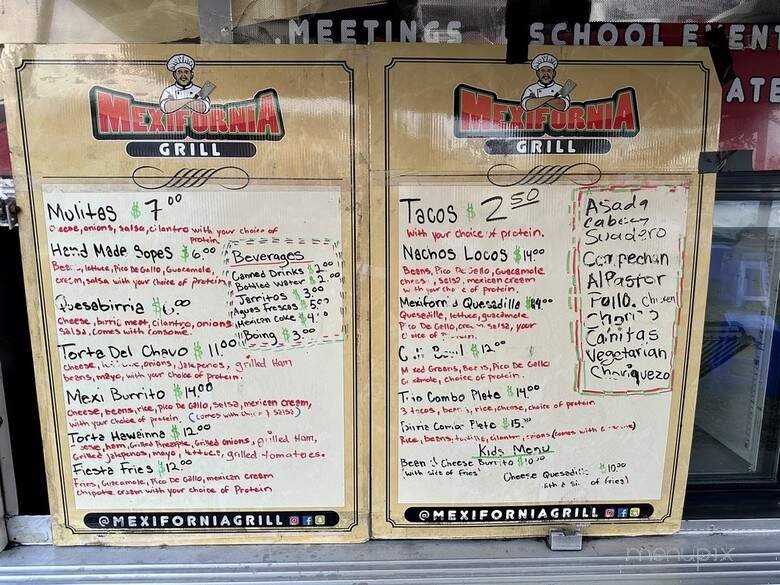 MEETINGS & SCHOOL EVENT
ATE
MEXIFORNIA
GRILL
Mulitas $7.00
Cheese, onions, salsa, cilantro with your choice of
protein.
Hand Made Sopes $6.00
Beans, lettuce, Pico De Gallo, Guacamole,
cream, salsa with your choice of protein.
Quesabirria $6.00
Cheese, birria meat, cilantro, onions
salsa. comes with consome.
Torta Del Chavo $11.00
Cheese, onions, jalepeños, grilled Ham
beans, mayo, with your choice of protein.
Mexi Burrito $14.00
Cheese, beans, rice, Pico De Gallo, salsa, mexican cream,
with your choice of protein. (comes with Chips & Salsa)
Torta Hawaiana $12.00
Cheese, ham, Grilled Pineapple, Grilled onions, grilled Ham,
Grilled jalapeños, mayo, lettuce, grilled tomatoes.
Fiesta Fries $12.00
Fries, Guacamole, Pico De Gallo, mexican cream
Chipotle cream with your choice of Protein
Beverages
Canned Drinks $2.00
Bottled Water $2.00
Jarritos $3.00
Aguas Frescas $5.00
Mexican Coke $4.00
Boing $3.00
@MEXIFORNIAGRILL
MEXIFORNIA
GRILL
Tacos $2.50
With your choice of protein.
Nachos Locos $14.00
Beans, Pico De Gallo, Guacamole
cheese, salsa, mexican cream
with your choice of protein.
Mexifornia Quesadilla $14.00
Quesadilla, lettuce, guacamole
Pico De Gallo, cream, salsa, your
choice of protein.
Bowl $12.00
Mixed Greens, Beans, Pico De Gallo
Guacamole, choice of protein.
Trio Combo Plate $14.00
3 tacos, beans, rice, cheese, choice of protein
Birria Combo Plate $15.50
Rice, beans, tortilla, cilantro, onions (comes with consome)
Kids Menu
Bean & Cheese Burrito $10.00
(with side of Fries)
Cheese Quesadilla $10.00
(with a side of fries)
Asada
Cabeza
Suadero
Campechan
Al Pastor
Pollo. Chicken
Chorizo
Carnitas
Vegetarian
Choriquezo
@MEXIFORNIAGRILL
menupix